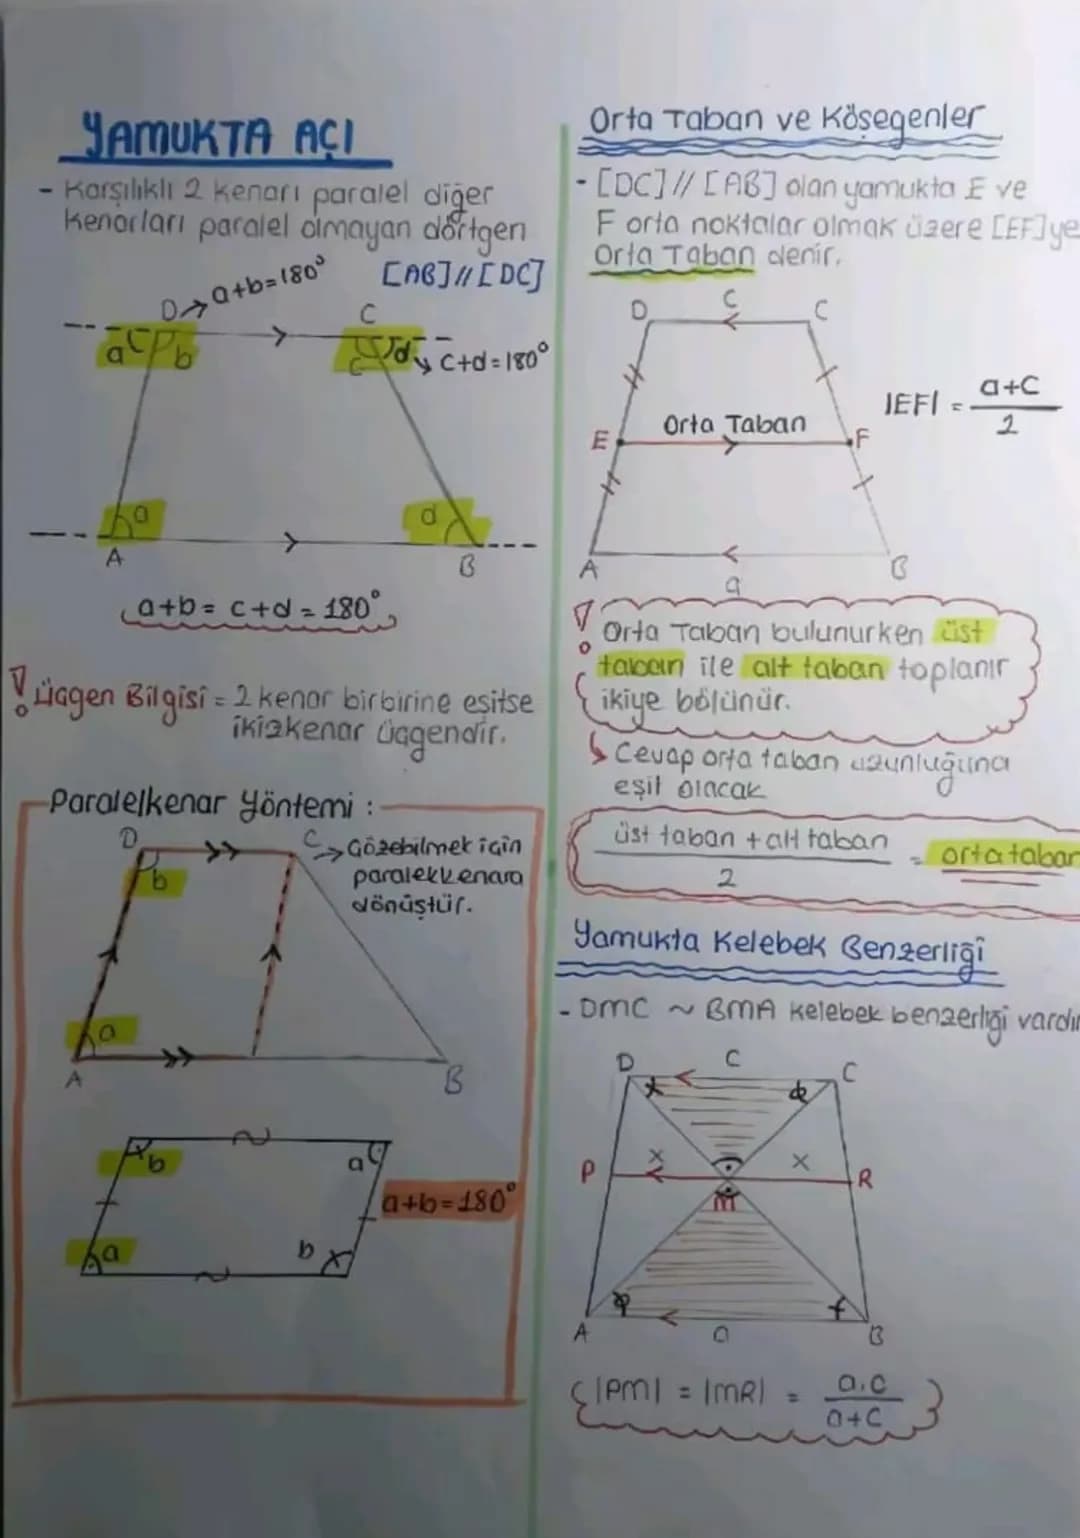 YAMUKTA AÇI
- Karşılıklı 2 kenarı paralel diğer
kenarları paralel olmayan dörtgen
[AB] // [DC]
D → a+b=180°
C
a b
c d → c+d=180°
a
d
A
B
a+b = c+d = 180°
! Üçgen Bilgisi = 2 kenar birbirine eşitse
ikizkenar üçgendir.
Paralelkenar Yöntemi :
D
C → Çözebilmek için
paralelkenara
dönüştür.
b
a
A
B
b
a
a+b=180°
a
b
Orta Taban ve Köşegenler
- [DC] // [AB] olan yamukta E ve
F orta noktalar olmak üzere [EF]ye
Orta Taban denir.
D
c
C
|EF| = a+c
2
E
Orta Taban
F
A
a
B
! Orta Taban bulunurken üst
taban ile alt taban toplanır
ikiye bölünür.
↳ Cevap orta taban uzunluğuna
eşit olacak
üst taban + alt taban
2
= orta taban
Yamukta Kelebek Benzerliği
- DMC ~ BMA kelebek benzerliği vardır
D
c
C
P
x
x
R
m
A
a
B
|PM| = |MR| = a.c
a+c